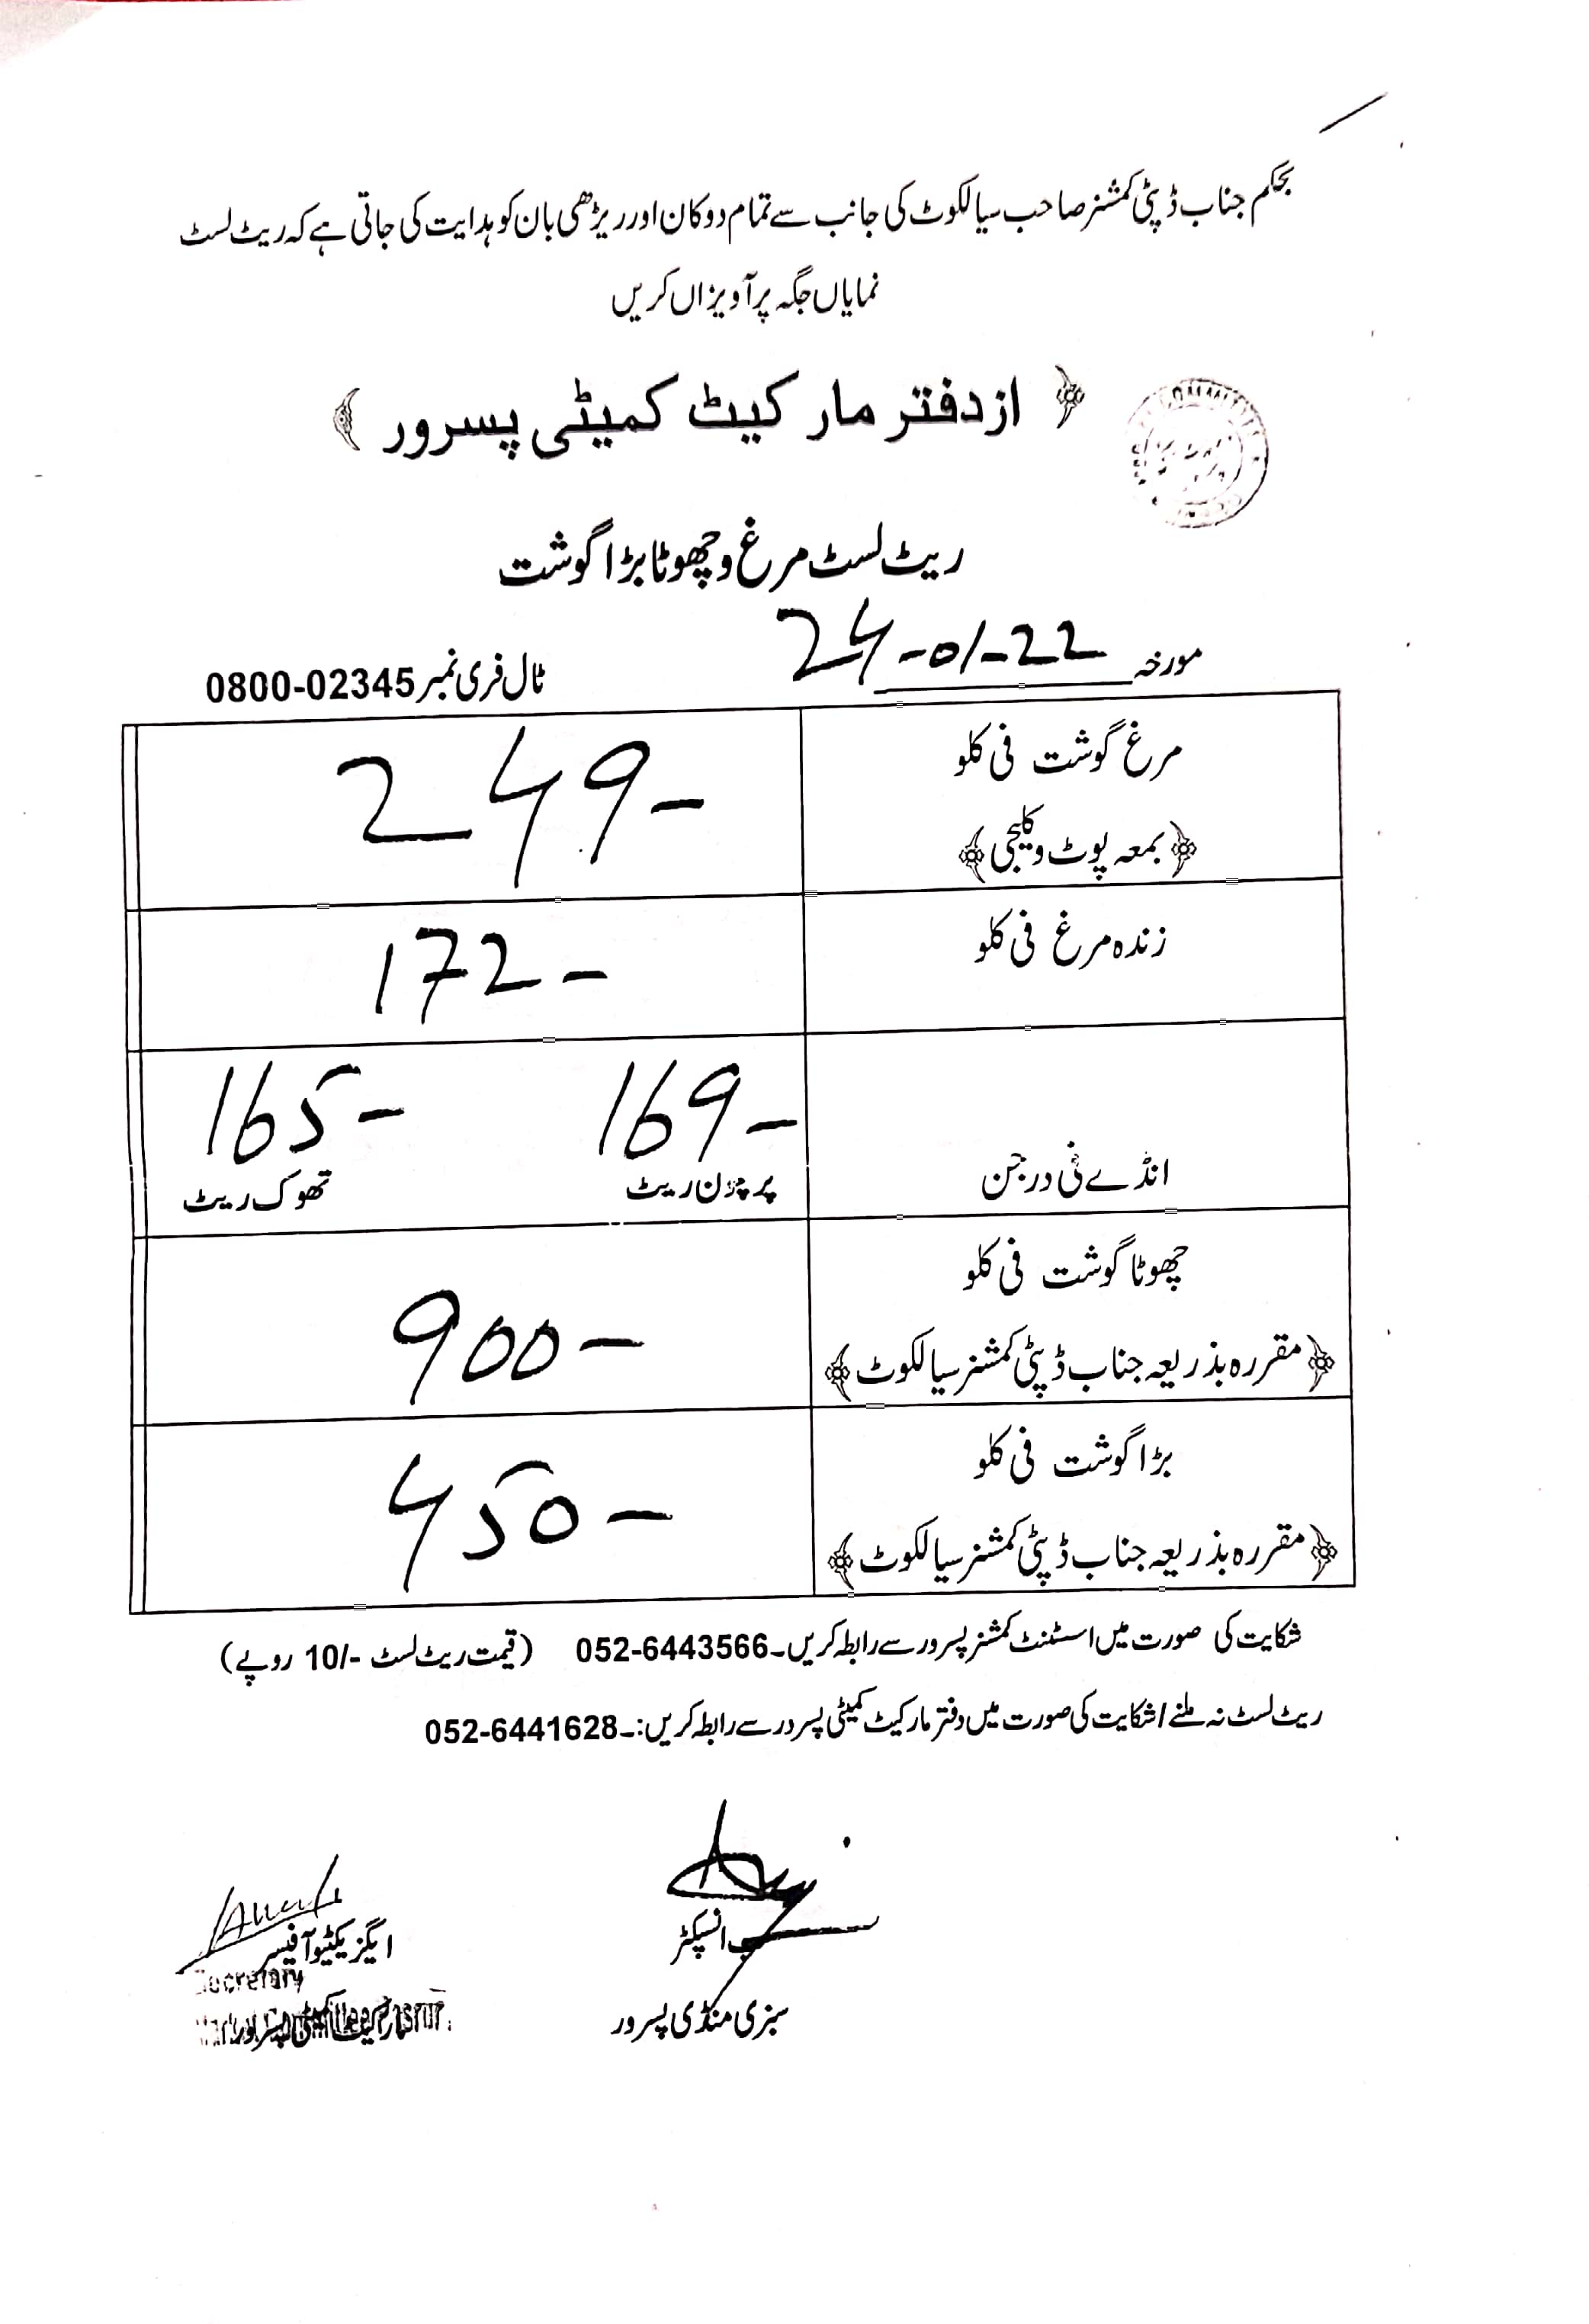 بحکم جناب ڈپٹی کمشنر صاحب سیالکوٹ کی جانب سے تمام دوکان اور ریڑھی بان کو ہدایت کی جاتی ہے کہ ریٹ لسٹ
نمایاں جگہ پر آویزاں کریں
﴿ از دفتر مار کیٹ کمیٹی پسرور ﴾
COMMITTEE
ریٹ لسٹ مرغ و چھوٹا بڑا گوشت
مورخہ 24-01-22
ٹال فری نمبر 0800-02345
مرغ گوشت فی کلو 249-
﴿بمعہ پوٹ و کلیجی﴾
زندہ مرغ فی کلو 172-
169- 165-
انڈے فی درجن پرچون ریٹ تھوک ریٹ
چھوٹا گوشت فی کلو 900-
﴿مقررہ بذریعہ جناب ڈپٹی کمشنر سیالکوٹ﴾
بڑا گوشت فی کلو 450-
﴿مقررہ بذریعہ جناب ڈپٹی کمشنر سیالکوٹ﴾
شکایت کی صورت میں اسسٹنٹ کمشنر پسرور سے رابطہ کریں۔052-6443566 (قیمت ریٹ لسٹ -/10 روپے)
ریٹ لسٹ نہ ملنے / شکایت کی صورت میں دفتر مارکیٹ کمیٹی پسرور سے رابطہ کریں:۔052-6441628
سب انسپکٹر
سبزی منڈی پسرور
ایگزیکٹیو آفیسر
Secretary
مارکیٹ کمیٹی پسرور